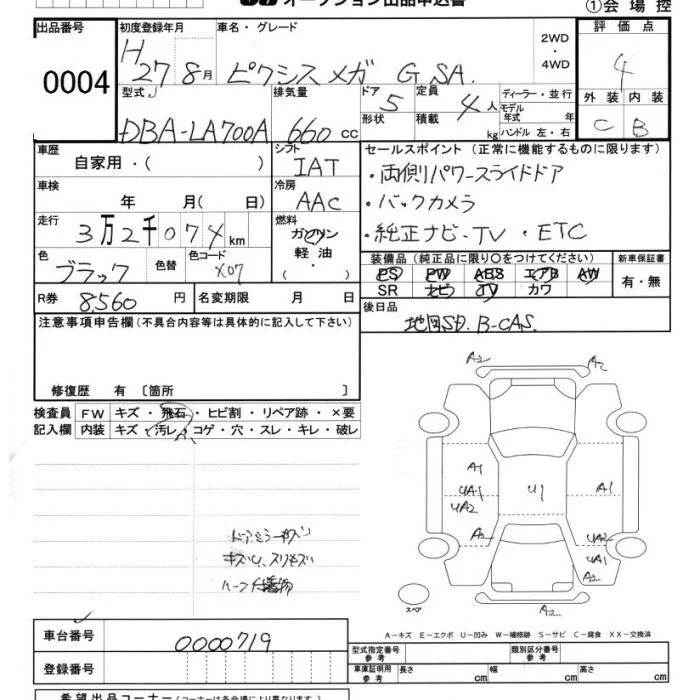 オークション出品申込書
①会場控
出品番号 初度登録年月 車名・グレード 2WD・4WD 評価点
0004 H27 8月 ピクシスメガ G SA. 4
型式 排気量 ドア 5 定員 4人 ディーラー・並行 外装 内装
DBA-LA700A 660cc 形状 積載 kg モデル年式 年 C B
ハンドル 左・右
車歴 シフト セールスポイント (正常に機能するものに限ります)
自家用・( ) IAT ・両側パワースライドドア
車検 冷房 ・バックカメラ
年 月( 日) AAC ・純正ナビ、TV ・ETC
走行 燃料
3万2千074km ガソリン
軽油
・( )
色 色替 色コード 装備品(純正品に限り○をつけてください) 新車保証書
ブラック X07 PS PW ABS エアB AW 有・無
SR ナビ TV カワ
R券 8,560円 名変期限 月 日 後日品
地図SD. B-CAS.
注意事項申告欄(不具合内容等は具体的に記入して下さい)
修復歴 有 〔箇所 〕
検査員 FW キズ・飛石・ヒビ割・リペア跡・×要
記入欄 内装 キズ・汚レ・コゲ・穴・スレ・キレ・破レ
A2 A2
A1
UA1 U1 A1
UA2
A2 UA2 A2
UA1
A2
A2
スペア
A-キズ E-エクボ U-凹み W-補修跡 S-サビ C-腐食 XX-交換済
車台番号 0000719 型式指定番号 参考 類別区分番号 参考
登録番号 車庫証明用 参考 長さ cm 幅 cm 高さ cm
希望出品コーナー(コーナーは各会場により異なります。)